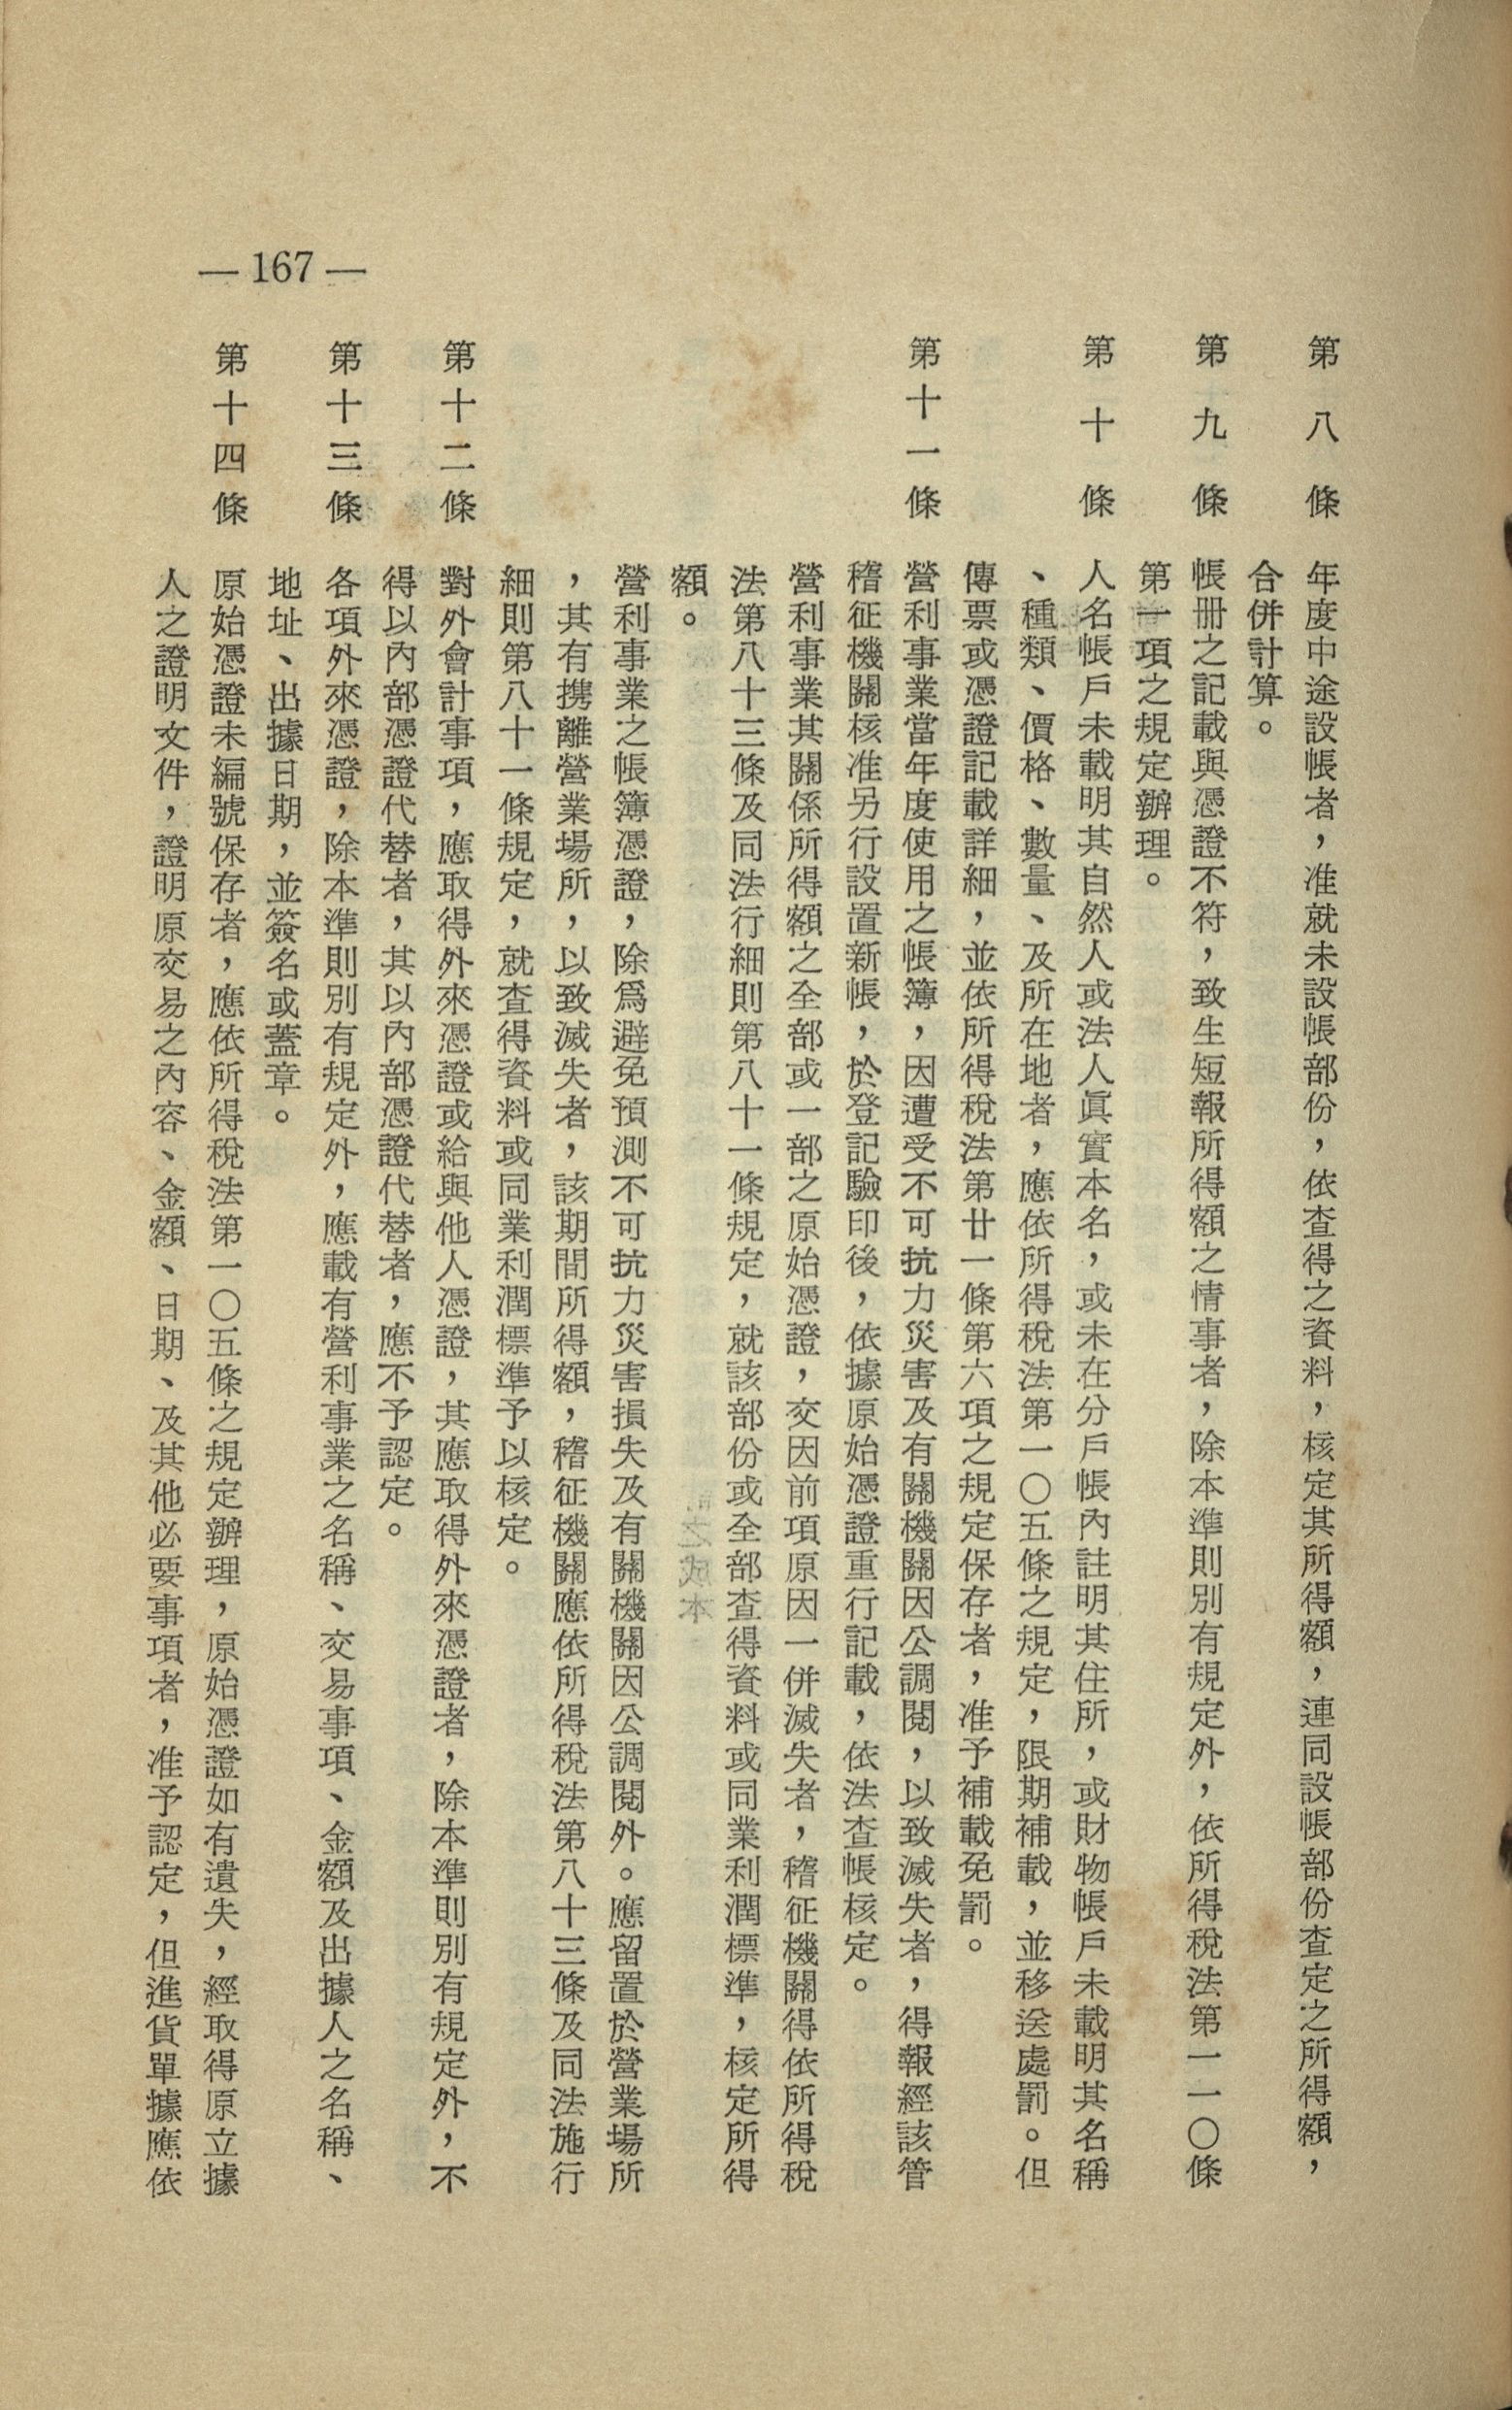 — 167 —
第八條　年度中途設帳者，准就未設帳部份，依查得之資料，核定其所得額，連同設帳部份查定之所得額，
合併計算。
第九條　帳冊之記載與憑證不符，致生短報所得額之情事者，除本準則別有規定外，依所得稅法第一一〇條
第一項之規定辦理。
第十條　人名帳戶未載明其自然人或法人眞實本名，或未在分戶帳內註明其住所，或財物帳戶未載明其名稱
、種類、價格、數量、及所在地者，應依所得稅法第一〇五條之規定，限期補載，並移送處罰。但
傳票或憑證記載詳細，並依所得稅法第廿一條第六項之規定保存者，准予補載免罰。
第十一條　營利事業當年度使用之帳簿，因遭受不可抗力災害及有關機關因公調閱，以致滅失者，得報經該管
稽征機關核准另行設置新帳，於登記驗印後，依據原始憑證重行記載，依法查帳核定。
營利事業其關係所得額之全部或一部之原始憑證，交因前項原因一併滅失者，稽征機關得依所得稅
法第八十三條及同法行細則第八十一條規定，就該部份或全部查得資料或同業利潤標準，核定所得
額。
營利事業之帳簿憑證，除爲避免預測不可抗力災害損失及有關機關因公調閱外。應留置於營業場所
，其有携離營業場所，以致滅失者，該期間所得額，稽征機關應依所得稅法第八十三條及同法施行
細則第八十一條規定，就查得資料或同業利潤標準予以核定。
第十二條　對外會計事項，應取得外來憑證或給與他人憑證，其應取得外來憑證者，除本準則別有規定外，不
得以內部憑證代替者，其以內部憑證代替者，應不予認定。
第十三條　各項外來憑證，除本準則別有規定外，應載有營利事業之名稱、交易事項、金額及出據人之名稱、
地址、出據日期，並簽名或蓋章。
第十四條　原始憑證未編號保存者，應依所得稅法第一〇五條之規定辦理，原始憑證如有遺失，經取得原立據
人之證明文件，證明原交易之內容、金額、日期、及其他必要事項者，准予認定，但進貨單據應依